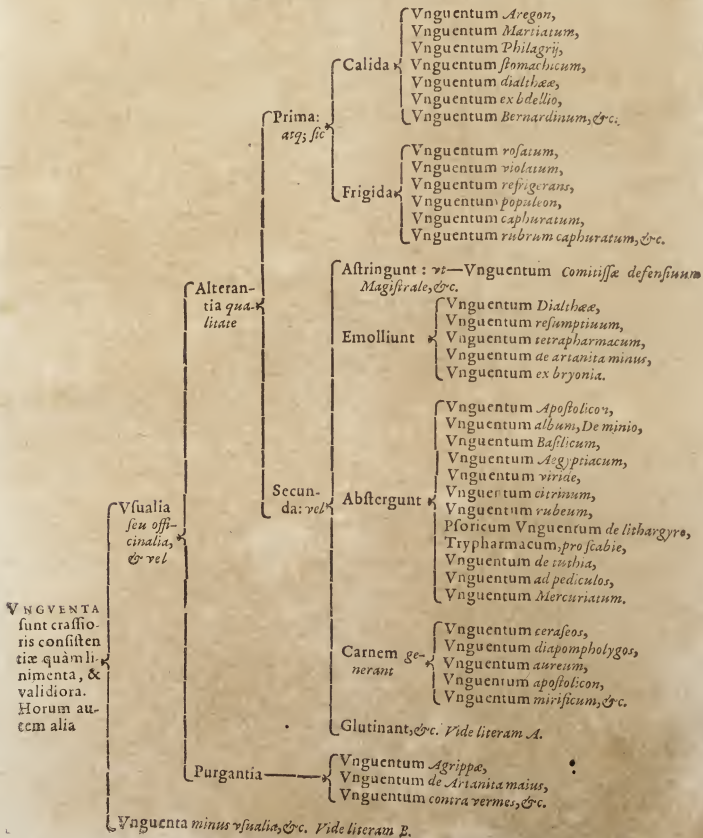 VNGVENTA
sunt crassio-
ris consisten
tiæ quàm li-
nimenta, &
validiora.
Horum au-
tem alia
Vsualia
seu offi-
cinalia,
& vel
Alteran-
tia qua-
litate
Prima:
atq; sic
Calida
Vnguentum Aregon,
Vnguentum Martiatum,
Vnguentum Philagrij,
Vnguentum stomachicum,
Vnguentum dialthææ,
Vnguentum ex bdellio,
Vnguentum Bernardinum, &c.
Frigida
Vnguentum rosatum,
Vnguentum violatum,
Vnguentum refrigerans,
Vnguentum populeon,
Vnguentum caphuratum,
Vnguentum rubrum caphuratum, &c.
Secun-
da: vel
Astringunt : vt—Vnguentum Comitissæ defensiuum
Magistrale, &c.
Emolliunt
Vnguentum Dialthææ,
Vnguentum resumptiuum,
Vnguentum tetrapharmacum,
Vnguentum de artanita minus,
Vnguentum ex bryonia.
Abstergunt
Vnguentum Apostolicon,
Vnguentum album, De minio,
Vnguentum Basilicum,
Vnguentum Aegyptiacum,
Vnguentum viride,
Vnguentum citrinum,
Vnguentum rubeum,
Psoricum Vnguentum de lithargyro,
Trypharmacum, pro scabie,
Vnguentum de tuthia,
Vnguentum ad pediculos,
Vnguentum Mercuriatum.
Carnem ge-
nerant
Vnguentum ceraseos,
Vnguentum diapompholygos,
Vnguentum aureum,
Vnguentum apostolicon,
Vnguentum mirificum, &c.
Glutinant, &c. Vide literam A.
Purgantia
Vnguentum Agrippæ,
Vnguentum de Artanita maius,
Vnguentum contra vermes, &c.
Vnguenta minus vsualia, &c. Vide literam B.